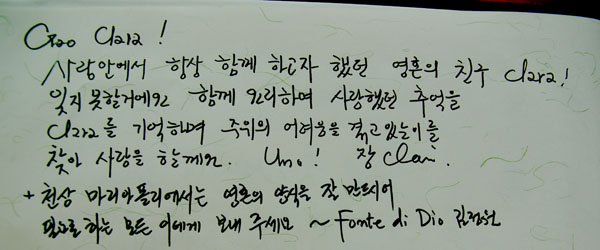 Ciao Clara!
사랑안에서 항상 함께 하고자 했던 영혼의 친구 Clara!
잊지 못할거에요 함께 요리하며 사랑했던 추억을
Clara를 기억하며 주위의 어려움을 겪고있는이를
찾아 사랑을 할게요. Uno! 장 Clari.
+ 천상 마리아폴리에서는 영혼의 양식을 잘 만드시어
필요로하는 모든 이에게 보내 주세요 ~ Fonte di Dio 김